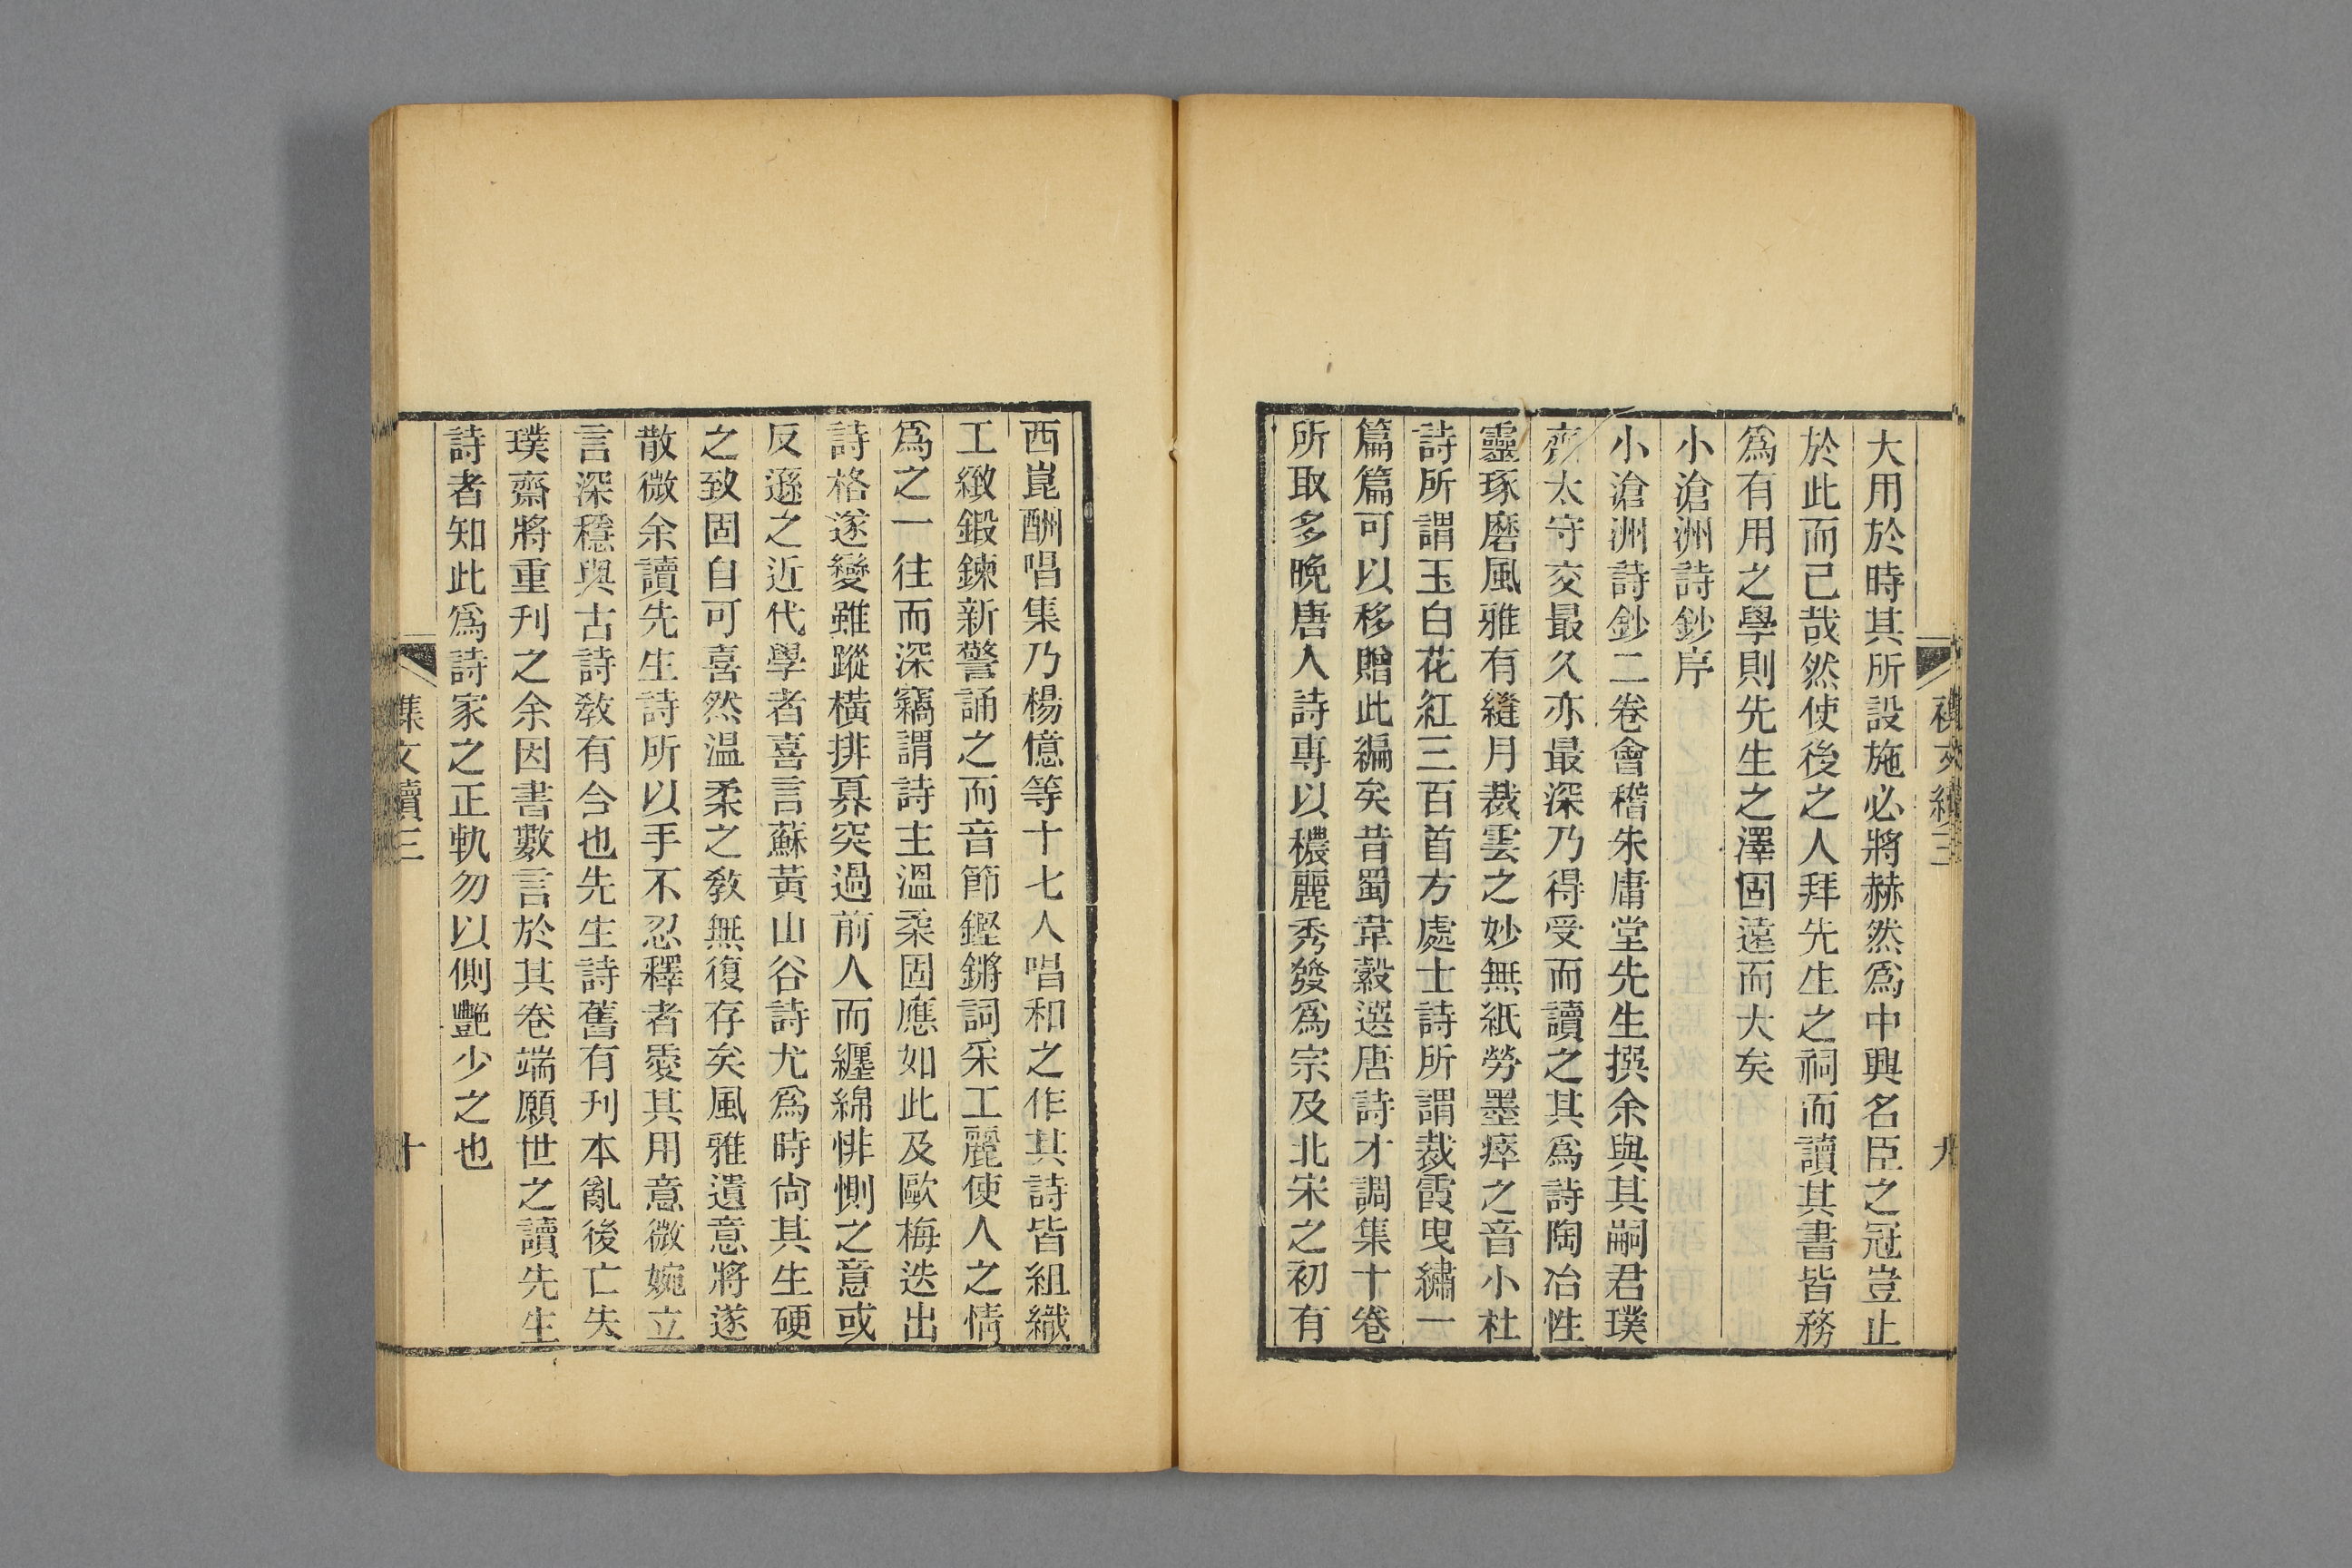 大用於時其所設施必將赫然爲中興名臣之冠豈止
於此而已哉然使後之人拜先生之祠而讀其書皆務
爲有用之學則先生之澤固遠而大矣
小滄洲詩鈔序
小滄洲詩鈔二卷會稽朱庸堂先生撰余與其嗣君璞
齋太守交最久亦最深乃得受而讀之其爲詩陶冶性
靈琢磨風雅有縫月裁雲之妙無紙勞墨瘁之音小杜
詩所謂玉白花紅三百首方處士詩所謂裁霞曳繡一
篇篇可以移贈此編矣昔蜀韋縠選唐詩才調集十卷
所取多晚唐人詩專以穠麗秀發爲宗及北宋之初有
西崑酬唱集乃楊億等十七人唱和之作其詩皆組織
工緻鍛鍊新警誦之而音節鏗鏘詞采工麗使人之情
爲之一往而深竊謂詩主溫柔固應如此及歐梅迭出
詩格遂變雖蹤橫排奡突過前人而纏綿悱惻之意或
反遜之近代學者喜言蘇黃山谷詩尤爲時尙其生硬
之致固自可喜然温柔之敎無復存矣風雅遺意將遂
散微余讀先生詩所以手不忍釋者愛其用意微婉立
言深穩與古詩敎有合也先生詩舊有刋本亂後亡失
璞齋將重刋之余因書數言於其卷端願世之讀先生
詩者知此爲詩家之正軌勿以側艷少之也
集文續三
十